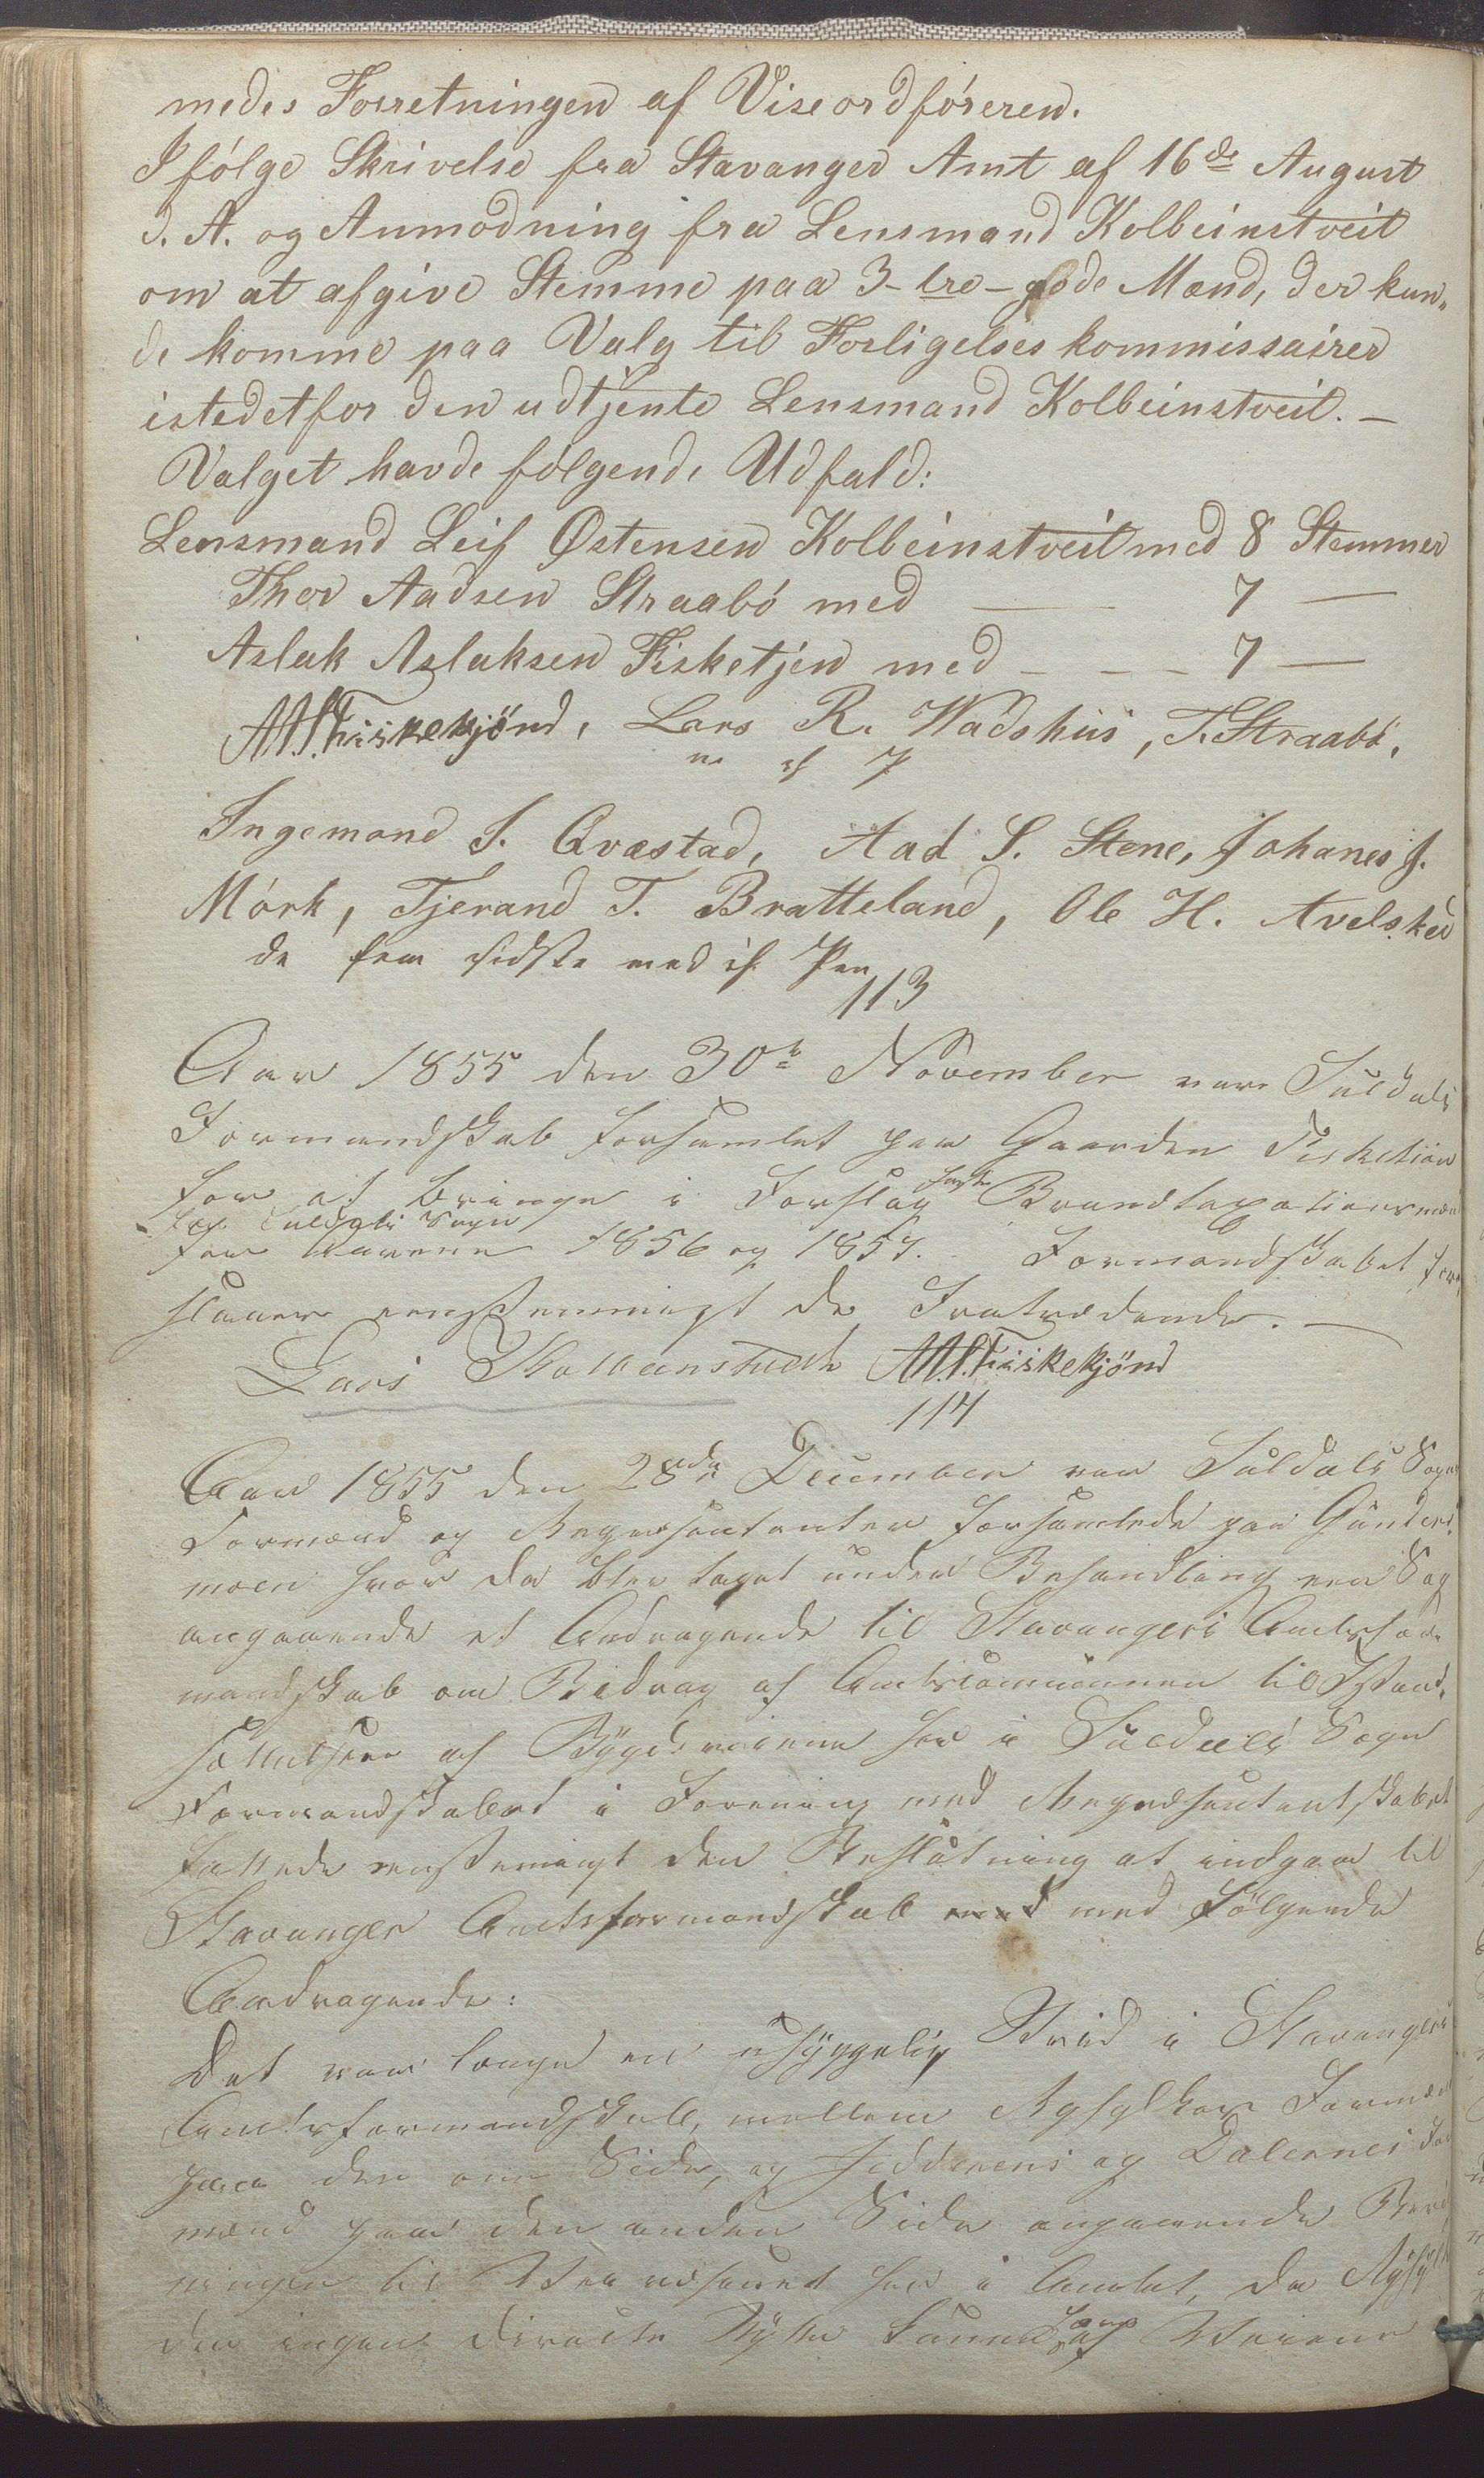 medes Forretningen af Viseordføreren.
Ifølge Skrivelse fra Stavanger Amt af 16de August
d. A. og Anmodning fra Lensmand Kolbeinstveit
om at afgive Stemme paa 3-tre-gode Mænd, der kun-
de komme paa Valg til Forligelseskommissairer
istedetfor den udtjente Lensmand Kolbeinstveit. -
Valget havde følgende Udfald:
Lensmand Leif Østensen Kolbeinstveit med 8 Stemmer
Thor Aadsen Straabø med — 7 —
Aslak Aslaksen Fisketjen med - - - 7 —
A.A.S. Fiiskekjönd, Lars R. Wadshus, T. Straabø.
Ingemand S. Qvæstad, Aad S. Stene, Johanes J.
Mørk, Tjerand T. Bratteland, Ole H. Avelsked
de fem sidste med if. Pen
113
Aar 1855 den 30te November var Suldals
Formandskab forsamlet paa Gaarden Fisketiøn
for at bringe i Forslag faste Brandtaxationsmænd
for Suldals Sogn
for Aarene 1856 og 1857. Formandskabet for-
slaaer eenstemmigt de Fratrædende. —
Lars Kolbenstvedt A.A.S. Fiiskekjönd
114
Aar 1855 den 28de December var Suldals Sogns
Formænd og Repræsentanter forsamlede paa Gunders-
moen hvor da blev taget under Behandling een Sag
angaaende et Andragende til Stavangers Amtsfor-
mandskab om Bidrag af Amtscommunen til Istand-
sættelsen af Bygdeveiene her i Suldals Sogn
Formandskabet i Forening med Repræsentantskabet
fattede eenstemigt den Beslutning at indgaae til
Stavanger Amtsformandskab med med Følgende
Andragende:
Det var længe en uhyggelig Strid i Stavangers
Amtsformandskab, mellem Ryfylkes Formænd
paa den ene Side, og Jedderens og Dalernes For
mænd paa den anden Side angaaende
til Veivæsenet her i Amtet, da Ryfylke
der ingen directe Nytte kunde have af Veiene